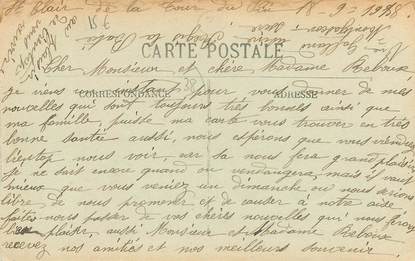 St Clair de la Tour du Pin 18-9-1928
CARTE POSTALE
Cher Monsieur et chère Madame Reboux
je viens pour vous donner de mes
CORRESPONDANCE ADRESSE
nouvelles qui sont toujours très bonnes ainsi que
ma famille, puisse ma carte vous trouver en très
bonne santée aussi, nous espérons que vous viendrez
bientot nous voir, car sa nous fera grand plaisir
je ne sait encore quand on vendangera, mais il vaut
mieux que vous veniez un dimanche ou nous serions
libre de nous promener et de causer à notre aise
faites nous passer de vos chères nouvelles qui nous feront
plaisir, aussi Monsieur et Madame Reboux
recevez nos amitiés et nos meilleurs souvenir